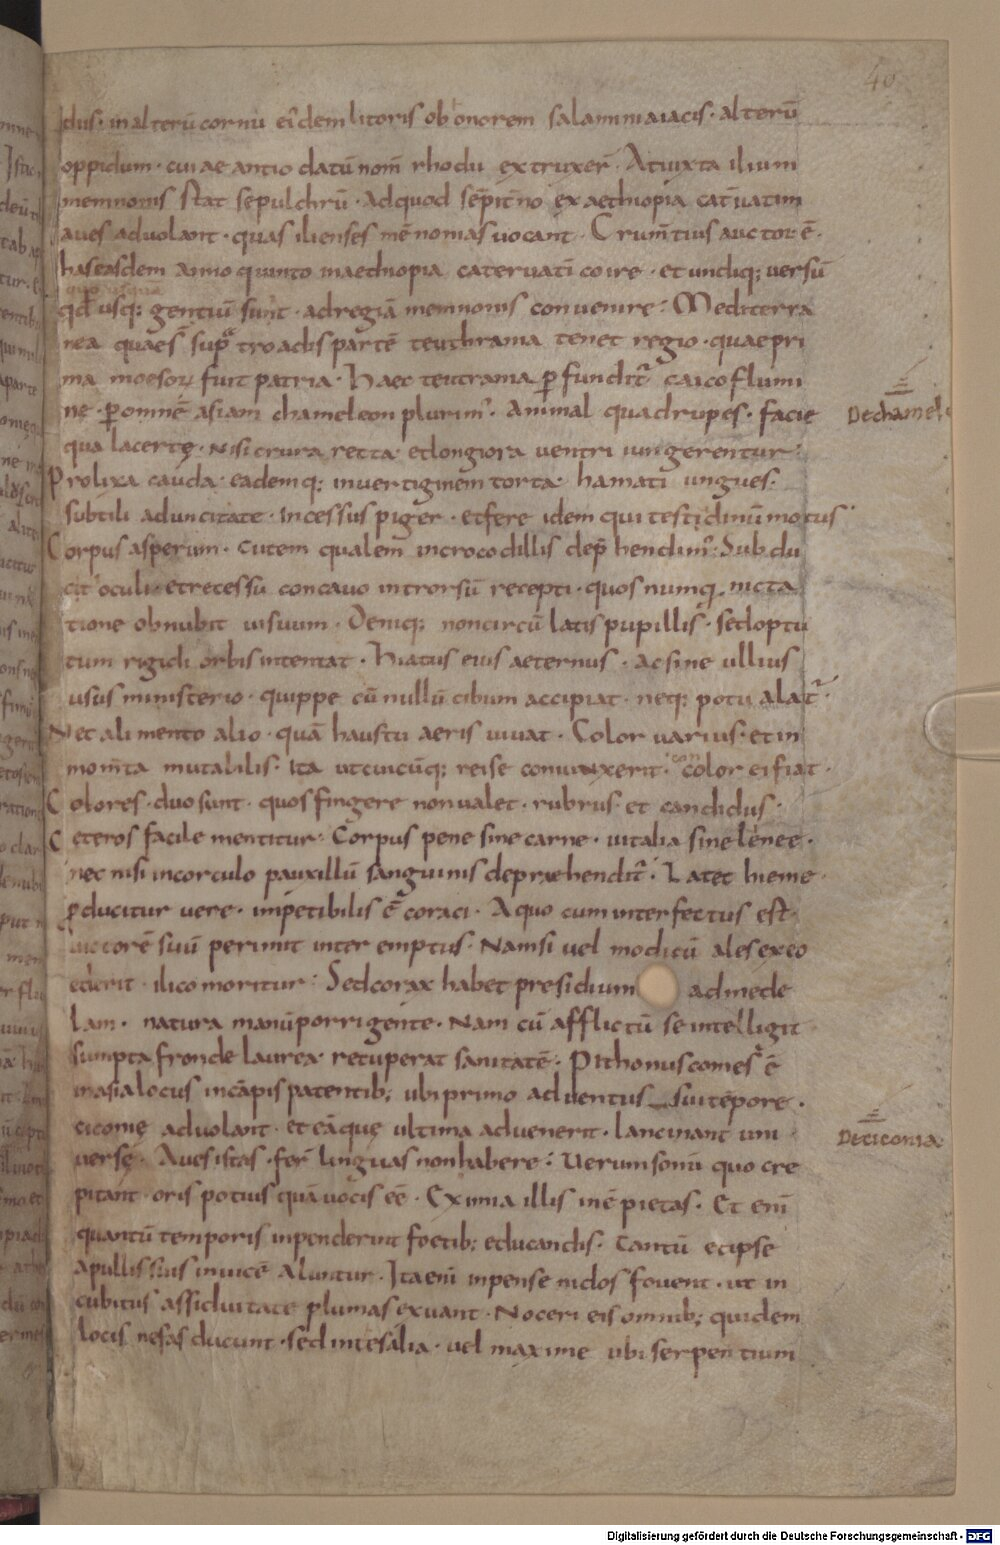 40
dus· in alterū cornu eīdem litoris ob onorem salaminiaiacis· alterū
oppidum· cui ae antio datū nom̄ rhodu extruxer̄· At iuxta ilium
memnonis stat sepulchrū· Ad quod sep̄it̄no ex aethiopia cat̄uatim
aues aduolant· quas ilienses mēnonias uocant· Crum̄tius auctor ē·
has easdem anno quinto in aethiopia cateruatī coire· et undiq; versū
quo usqua
qd̄ usq; gentiū sunt· ad regiā memnonis conuenire· Mediterra
nea quae s̄ supͣ troadis partē teuthrania tenet regio· quae pri
ma moesoꝝ fuit patria· Haec teutrania ꝑfundit̄ caico flumi
ne· ꝑ omnē asiam chameleon plurim̄· Animal quadrupes· facie
De chamel
qua lacertę· nisi crura recta et longiora ventri iungerentur·
Prolixa cauda· eademq; in uertiginem torta· hamati ungues·
subtili aduncitate· Incessus piger· et fere idem qui testidinū motus·
Corpus asperum· cutem qualem in crocodillis dep̄hendim̄· Subdu
cit oculi· et recessū concauo introrsū recepti· quos numq̄· nicta
tione obnubit uisuum· Deniq; non circūlatis pupillis· sed optu
tum rigidi orbis intentat· Hiatus eius aeternus· ac sine ullius
usus ministerio· quippe cū nullū cibum accipiat· neq; potu alat̄·
Nec alimento alio· quā haustu aeris uiuat· Color uarius· et in
mom̄ta mutabilis· ita ut cuicūq; rei se coniunxerit· color ei fiat·
Colores· duo sunt· quos fingere non ualet· rubrus· et candidus·
Ceteros facile mentitur· Corpus pene sine carne· uitalia sine lenee·
nec nisi in corculo pauxillū sanguinis depraehendit̄· Latet hieme·
ꝓducitur uere· impetibilis ē coraci· A quo cum interfectus est
uictorē suū perimit interemptus· Nam si uel modicū ales ex eo
ederit· ilico moritur· Sed corax habet presidium ad mede
lam· natura manū porrigente· Nam cū afflictū se intelligit
sumpta fronde laurea recuperat sanitatē· Pithonus comes ē
in asia locus in cāpis patentib; ubi primo aduentus sui tepore·
ciconię aduolant· et eā quę ultima aduenerit· lancinant uni
De ciconia
uersę· Aues istas· fer̄ linguas non habere· Uerum sonū quo cre
pitant· oris potius quā uocis eē· Eximia illis inē pietas· Et enī
quantū temporis inpenderint foetib; educandis· Tantū et ipse
a pullis suis inuicē aluntur· Ita enī inpense nidos fouent· ut in
cubitus assiduitate plumas exuant· Noceri eis omnib; quidem
locis nefas ducunt· sed in tesalia· uel maxime ubi serpentium
Digitalisierung gefördert durch die Deutsche Forschungsgemeinschaft - DFG